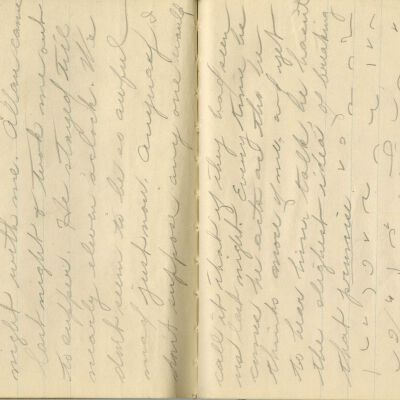 night with me. Allan came
last night & took me out
to supper. He stayed till
nearly eleven o'clock. We
don't seem to be so awful
mad just now. Anyway I
don't suppose any one would
call it that if they had seen
us last night. Every time he
comes he acts as tho he
thinks more of me and yet
to hear him talk he hasn't
the slightest idea of breaking
that promise